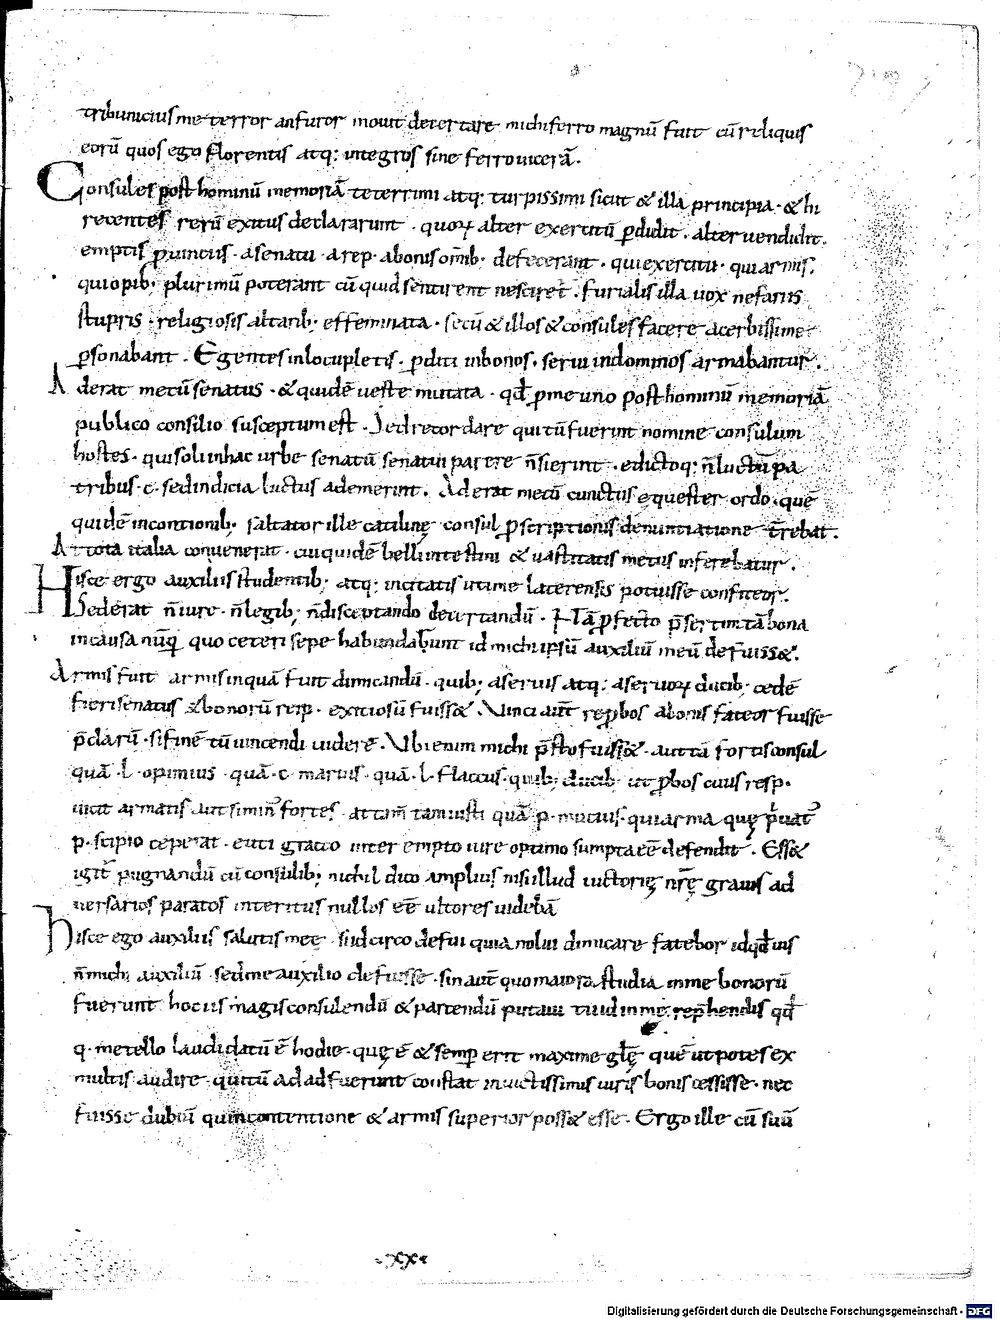 tribunicius me terror an furor mouit decertare michi ferro magnū fuit cū reliquis
eorū quos ego florentis atq; integros sine ferro uicerā.
Consules post hominū memoriā teterrimi atq; turpissimi sicut & illa principia · & hi
recentes rerū exitus declararunt · quoꝝ alter exercitū ꝑdidit . alter uendidit.
emptis ꝓuinciis · a senatu · a rep · a bonis om̄ib; defecerant . qui exercitu · qui armis.
qui opib; plurimū poterant cū quid sentirent nesciret . furialis illa uox nefariis
stupris · religiosis altarib; effeminata · secū & illos & consules facere acerbissime
ꝑsonabant . Egentes in locupletis · ꝑditi in bonos . serui in dominos armabantur .
Aderat mecū senatus · & quidē ueste mutata · qđ ꝓ me uno post hominū memoriā
publico consilio susceptum est . Sed recordare qui tū fuerint nomine consulum
hostes · qui soli in hac urbe senatū senatui parere n̄ sierint . edictoq; n̄ luctū pa
tribus · c · sed indicia luctus ademerint . Aderat mecū cunctus equester ordo · que
quidē in contionib; saltator ille catilinę consul ꝓscriptionis denuntiatione t̄rebat .
At tota italia conuenerat · cui quidē belli intestini & uastitatis metus inferebatur .
Hisce ergo auxiliis studentib; atq; incitatis uti me laterensis potuisse confiteor.
Sed erat n̄ iure · n̄ legib; n̄ disceptando decertandū . Nā ꝓfecto p̄sertim tā bona
in causa nūq̄ quo ceteri sepe habundabunt id michi ipsū auxiliū meū defuiss&.
Armis fuit armis inquā fuit dimicandū · quib; a seruis atq; a seruoꝝ ducib; cedē
fieri senatus & bonorū reip · exitiosū fuiss& . Vinci aūt reꝓbos a bonis fateor fuisse
p̄clarū · si finē tū uincendi uiderē . Vbi enim michi p̄sto fuiss& · aut tā fortis consul
quā · l · opimius · quā · c · marius · quā · l · flaccus · quib; ducib; ut ꝓbos ciuis resp ·
uicit armatis aut si min̄ fortes · attam̄ tam iusti quā · p · mucius · qui arma quę
p · scipio ceperat · euti gracco inter empto iure optimo sumpta eē defendit . Ess&
igit̄ pugnandū cū consulib; nichil dico amplius nisi illud uictorię nrę̄ grauis ad
uersarios paratos interitus nullos eē ultores uidebā
hisce ego auxiliis salutis meę si idcirco defui quia nolui dimicare fatebor id qđ uis
n̄ michi auxiliū · sed me auxilio defuisse · sin aūt quo maiora studia in me bonorū
fuerunt hoc iis magis consulendū & parcendū putaui tu id in me rep̄hendis qđ
q · metello laudi datū ē hodie · quę ē & semꝑ erit maxime glę̄ quē ut potes ex
multis audire · qui tū ad ad fuerunt constat inuictissimis uiris bonis cessisse · nec
fuisse dubiū quin contentione & armis superior poss& esse · Ergo ille cū suū
· xx ·
Digitalisierung gefördert durch die Deutsche Forschungsgemeinschaft - DFG